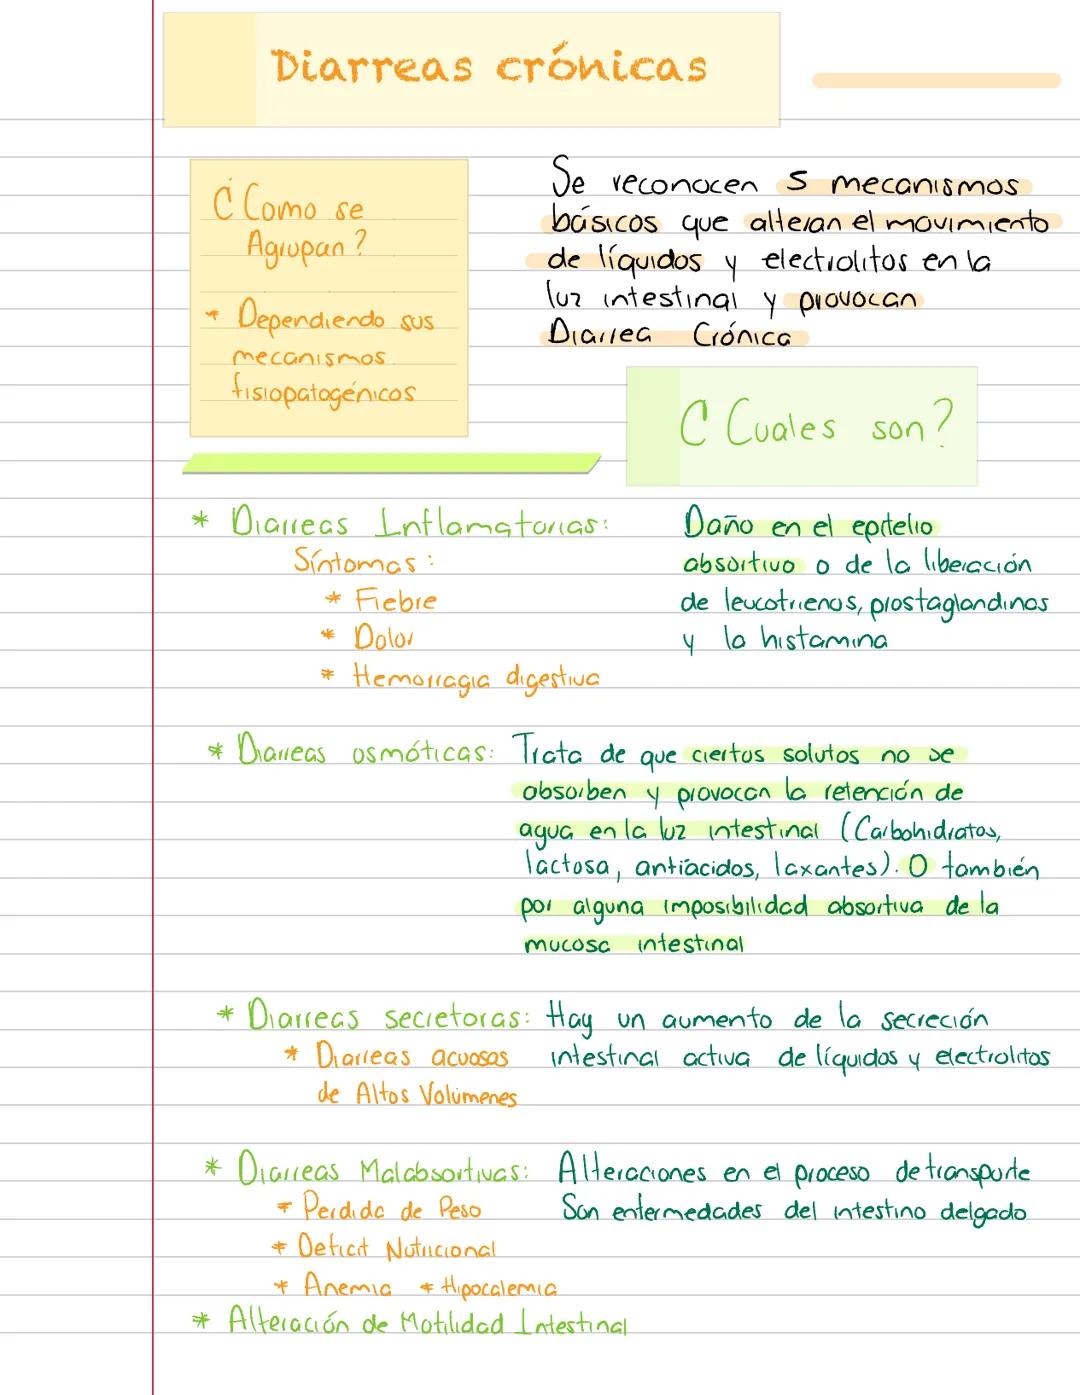 Diarreas crónicas
¿Como se
Agrupan?
* Dependiendo sus
mecanismos
fisiopatogénicos
Se reconocen 5 mecanismos
básicos que alteran el movimiento
de líquidos y electrolitos en la
luz intestinal y provocan
Diarrea Crónica
¿Cuales son?
* Diarreas Inflamatorias:
Síntomas:
* Fiebre
* Dolor
* Hemorragia digestiva
Daño en el epitelio
absortivo o de la liberación
de leucotrienos, prostaglandinas
y la histamina
* Diarreas osmóticas: Trata de que ciertos solutos no se
absorben y provocan la retención de
agua en la luz intestinal (Carbohidratos,
lactosa, antiácidos, laxantes). O también
por alguna imposibilidad absortiva de la
mucosa intestinal
* Diarreas secretoras: Hay un aumento de la secreción
* Diarreas acuosas intestinal activa de líquidos y electrolitos
de Altos Volúmenes
* Diarreas Malabsortivas: Alteraciones en el proceso de transporte
* Perdida de Peso Son enfermedades del intestino delgado
* Deficit Nutricional
* Anemia * Hipocalemia
* Alteración de Motilidad Intestinal